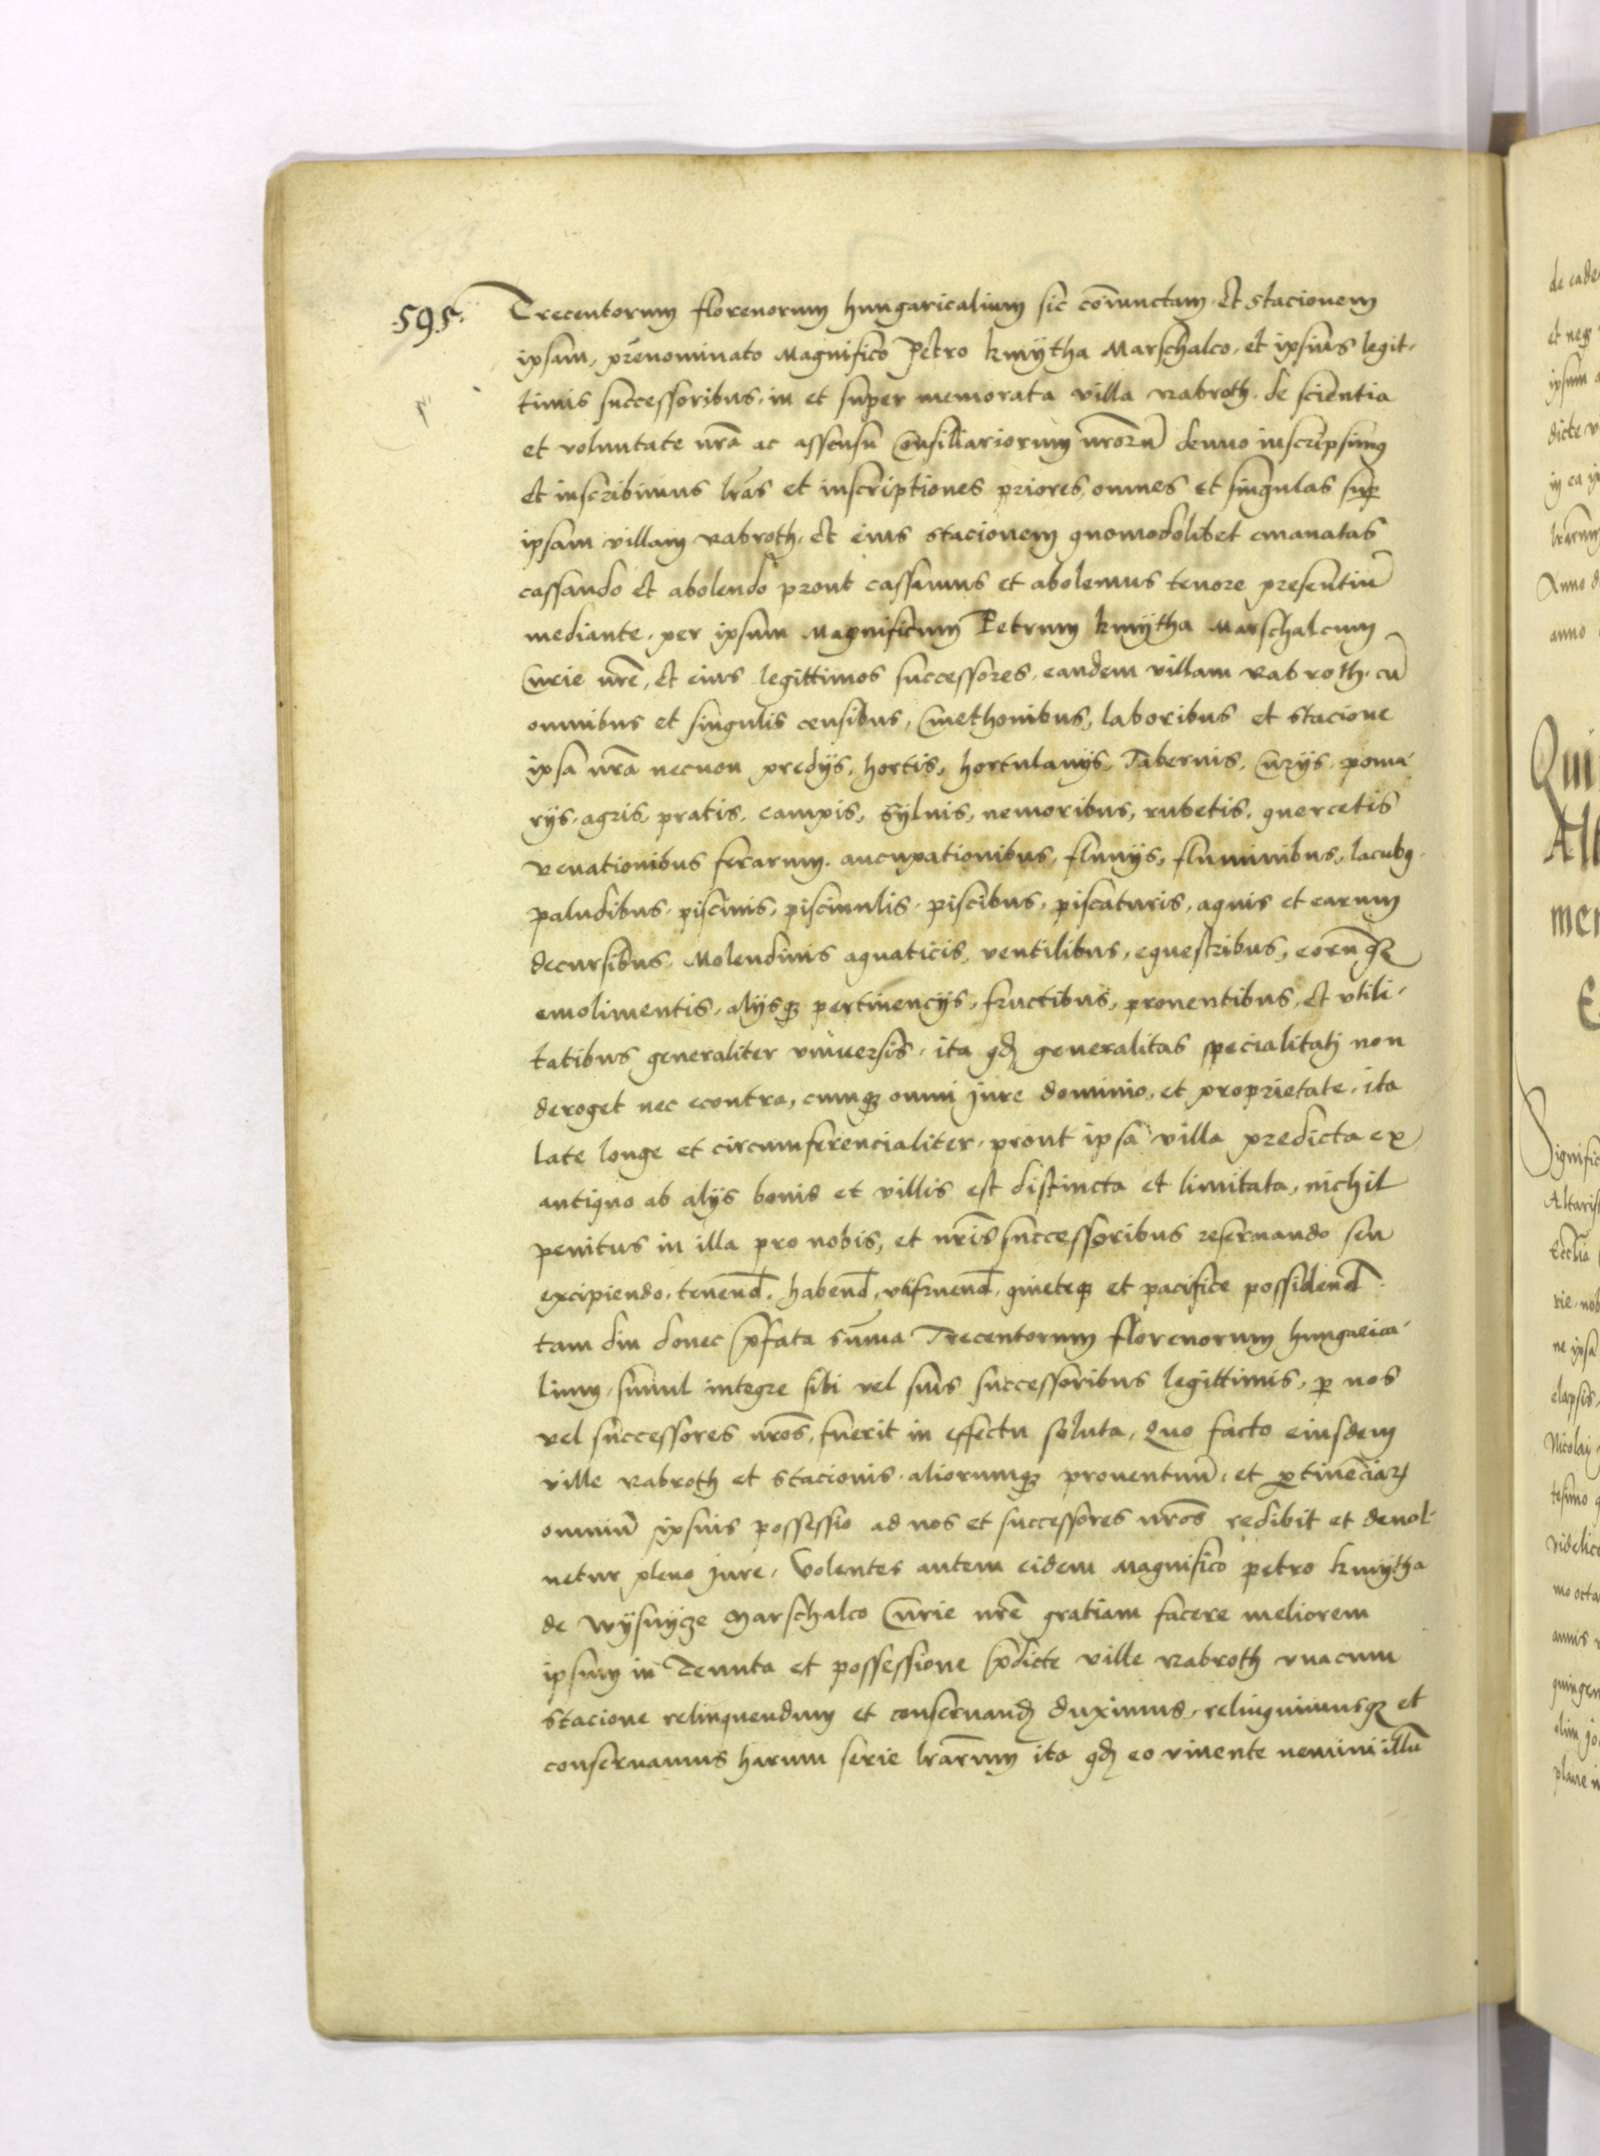 595. Trecentorum florenorum hungaricalium sic coniunctam et stacionem
ipsam, prenominato Magnifico Petro kmÿtha Marschalco, et ipsius legit-
timis successoribus, in et super memorata villa Rabroth, de scientia
et voluntate nrã ac assensu Consiliariorum nrorũ denuo inscripsimus
et inscribimus lrãs et inscriptiones priores omnes et singulas sup
ipsam villam Rabroth, et eius stacionem quomodolibet emanatas
cassando et abolendo prout cassamus et abolemus tenore presentiũ
mediante, per ipsum Magnificum Petrum kmÿtha Marschalcum
Curie nrẽ, et eius legittimos successores, eandem villam Rabroth, cũ
omnibus et singulis censibus, Cmethonibus, laboribus et stacione
ipsa nrã necnon predijs, hortis, hortulanijs, Tabernis, Curijs, poma-
rijs, agris, pratis, campis, Sylvis, nemoribus, rubetis, quercetis
venationibus ferarum, aucupationibus, fluuijs, fluminibus, lacubq
paludibus, piscinis, pisciniulis, piscibus, piscaturis, aquis et earum
decursibus, Molendinis aquaticis, ventilibus, equestribus, eorũq3
emolimentis, alijsq3 pertinencijs, fructibus, prouentibus, et vtili-
tatibus generaliter vniuersis, ita qd generalitas specialitatj non
deroget nec econtra, cumq3 omni jure dominio, et proprietate, ita
late longe et circumferencialiter, prout ipsa villa predicta ex
antiquo ab alijs bonis et villis est distincta et limitata, nichil
penitus in illa pro nobis, et nrĩs successoribus reseruando seu
excipiendo, tenend, habend, utifruend, quieteq3 et pacifice possidend
tam diu donec prefata sũma Trecentorum florenorum hungarica-
lium, simul integre sibi vel suis successoribus legittimis, p nos
vel successores nrõs, fuerit in effectu soluta, Quo facto eiusdem
ville Rabroth et stacionis aliorumq3 prouentuum, et ptinẽciar
omniũ ipsius possessio ad nos et successores nrõs redibit et deuol-
uetur pleno jure, Volentes autem eidem Magnifico petro kmÿtha
de wÿsnÿcze Marschalco Curie nrẽ gratiam facere meliorem
ipsum in Tenuta et possessione pdicte ville Rabroth vnacum
stacione relinquendum et conseruand duximus, relinquimusq3 et
conseruamus harum serie lrãrum ita qd eo viuente nemini illũ